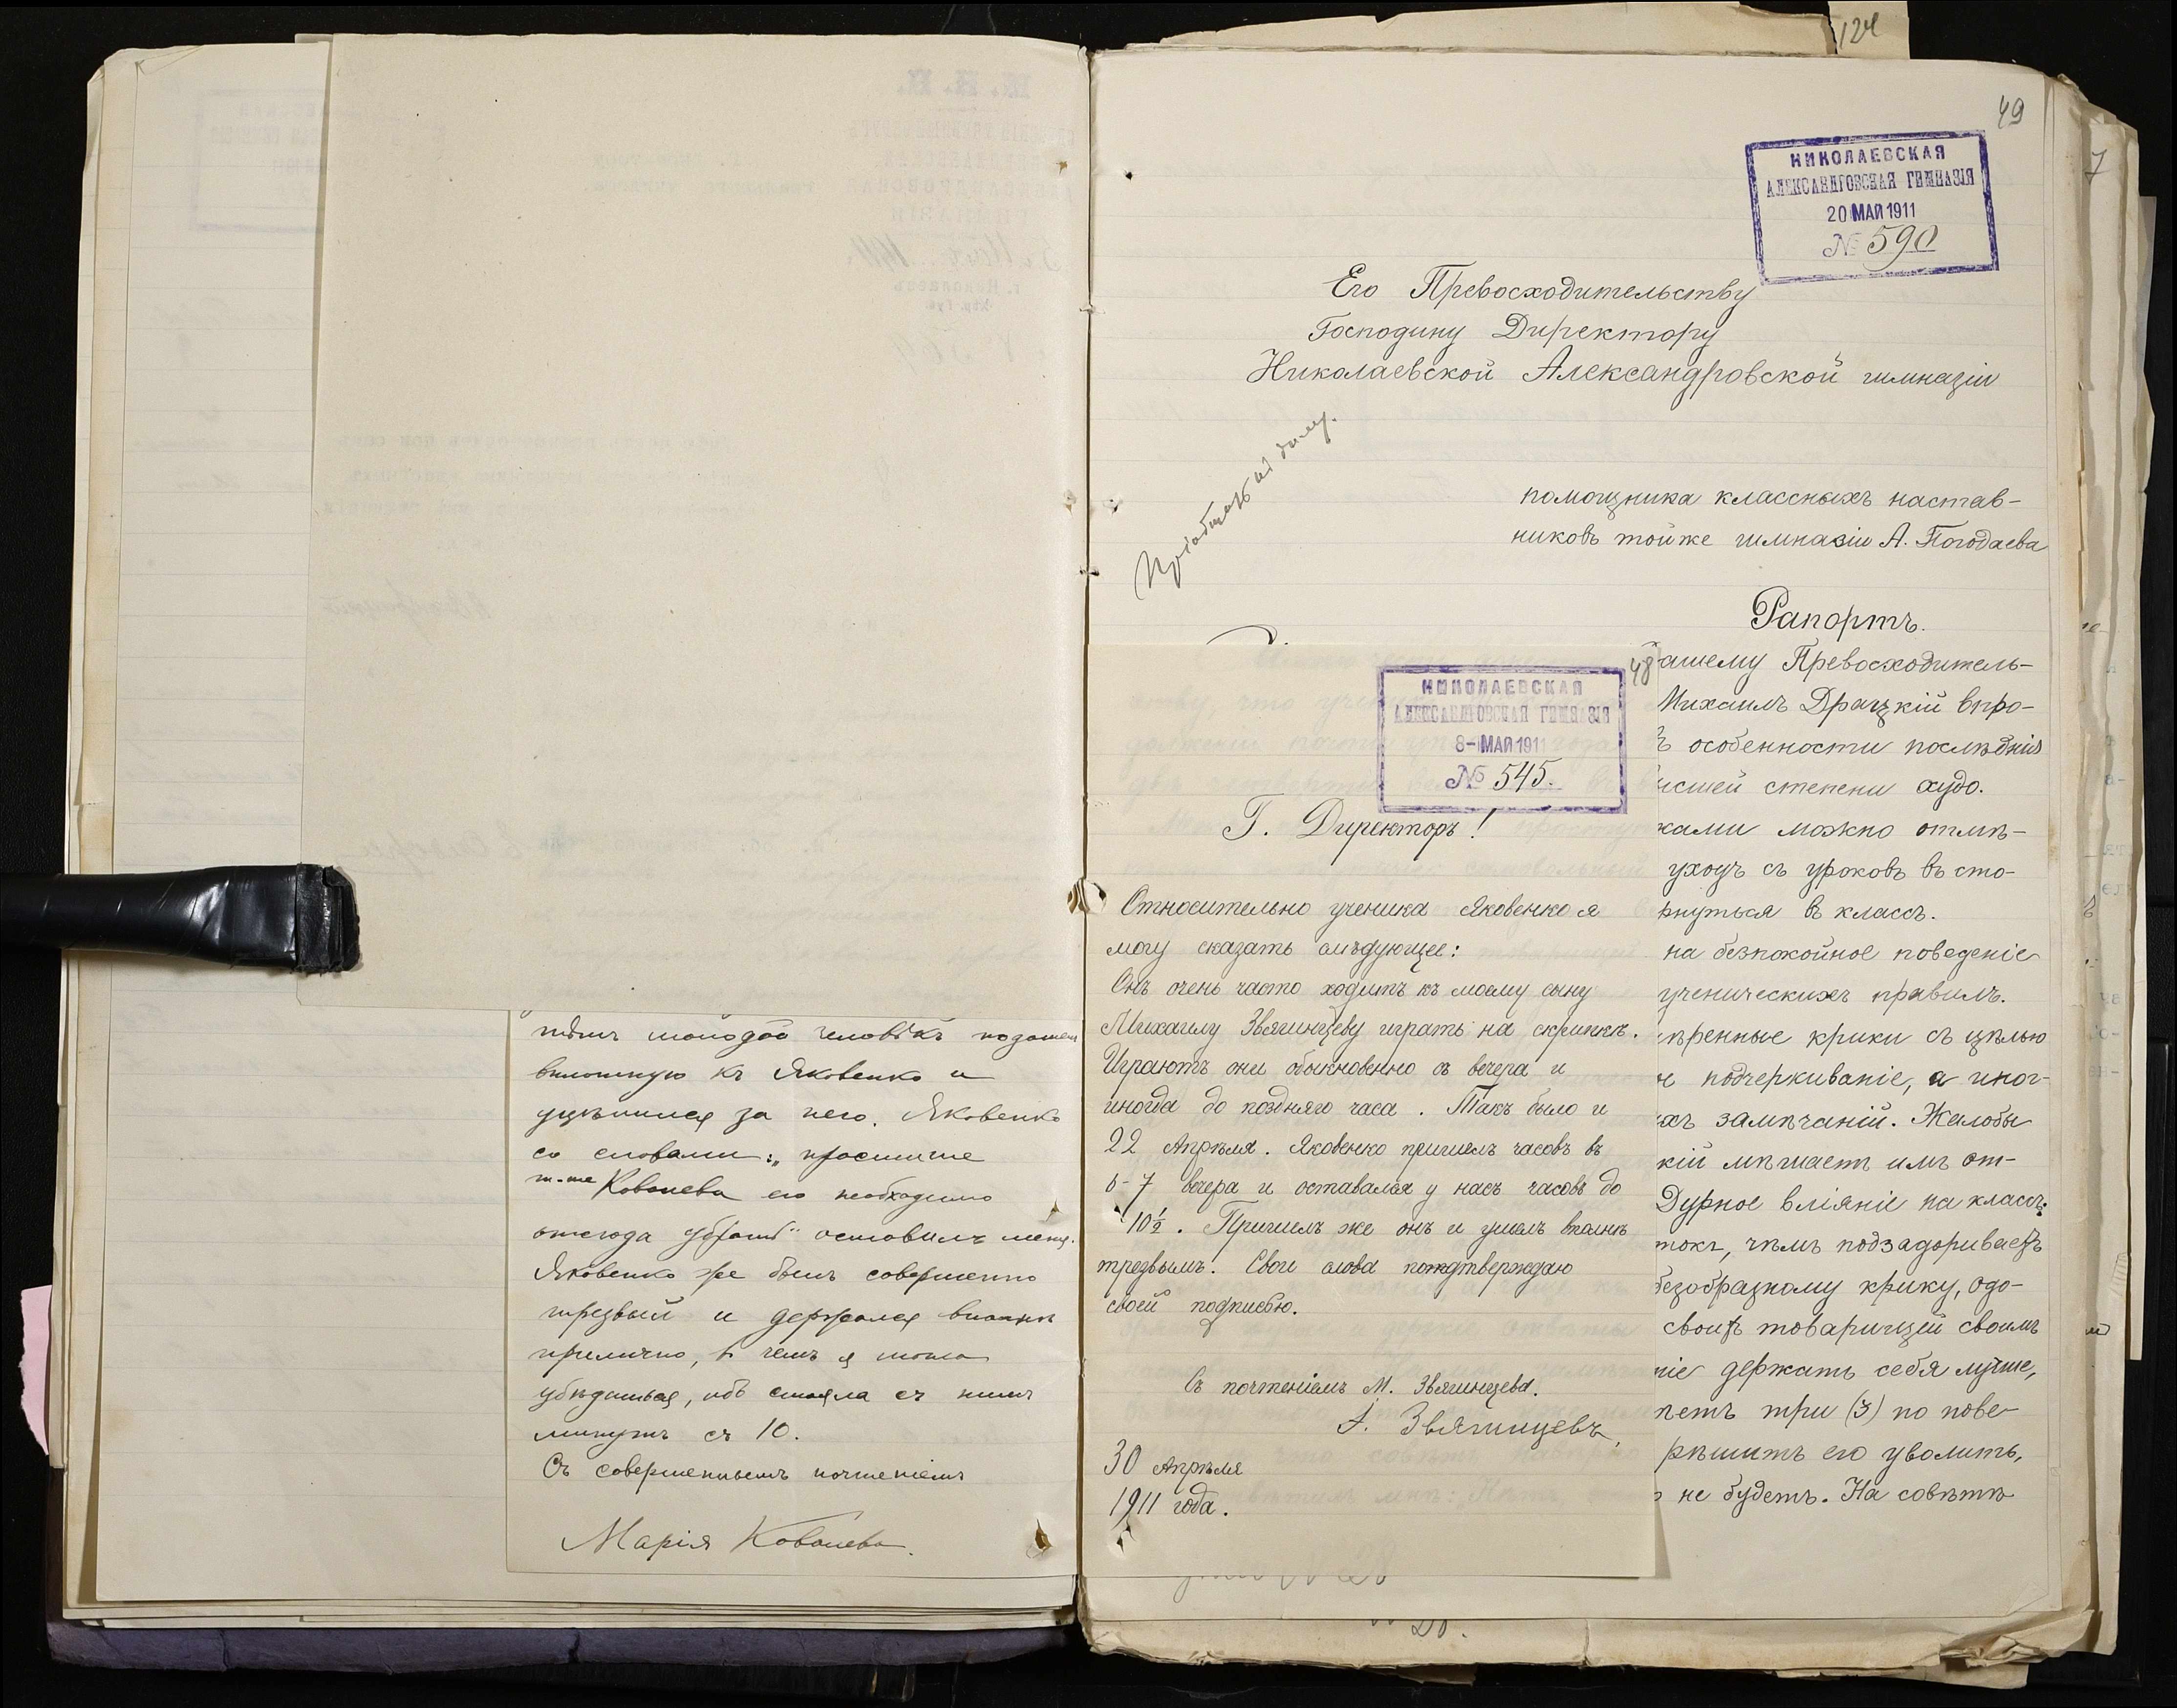 тѣмъ молодой человѣкъ подошелъ
вплотную къ Яковенко и
уцѣпился за него. Яковенко
со словами: „простите
m-me Ковалева его необходимо
отсюда убрать“ оставилъ меня.
Яковенко же былъ совершенно
трезвый и держался вполнѣ
прилично, въ чемъ я могла
убѣдиться, ибо стояла съ нимъ
минутъ съ 10.
Съ совершеннымъ почтеніемъ
Марія Ковалева.
124
49
НИКОЛАЕВСКАЯ
АЛЕКСАНДРОВСКАЯ ГИМНАЗІЯ
20 МАЯ 1911
№ 590
Его Превосходительству
Господину Директору
Николаевской Александровской гимназіи
помощника классныхъ настав-
никовъ тойже гимназіи А. Погодаева
Рапортъ.
ашему Превосходитель-
Михаилъ Драцкій впро-
ъ особенности послѣднія
ысшей степени худо.
ками можно отмѣ-
уходъ съ уроковъ въ сто-
рнуться въ классъ.
на безпокойное поведеніе
ученическихъ правилъ.
ѣренные крики съ цѣлью
е подчеркиваніе, а иног-
хъ замѣчаній. Жалобы
кій мѣшаетъ имъ от-
Дурное вліяніе на классъ;
токъ, чѣмъ подзадориваетъ
безобразному крику, одо-
своихъ товарищей своимъ
ніе держать себя лучше,
летъ три (3) по пове-
рѣшитъ его уволить,
о не будетъ. На совѣтѣ
48
НИКОЛАЕВСКАЯ
АЛЕКСАНДРОВСКАЯ ГИМНАЗІЯ
8- МАЯ 1911
№ 545.
Г. Директоръ!
Относительно ученика Яковенко я
могу сказать слѣдующее:
Онъ очень часто ходитъ къ моему сыну
Михаилу Звягинцеву играть на скрипкѣ.
Играютъ они обыкновенно съ вечера и
иногда до поздняго часа. Такъ было и
22 Апрѣля. Яковенко пришелъ часовъ въ
6-7 вечера и оставался у насъ часовъ до
10½. Пришелъ же онъ и ушелъ вполнѣ
трезвымъ. Свои слова подтверждаю
своей подписью.
Съ почтеніемъ М. Звягинцева.
Звягинцевъ.
30 Апрѣля
1911 года.